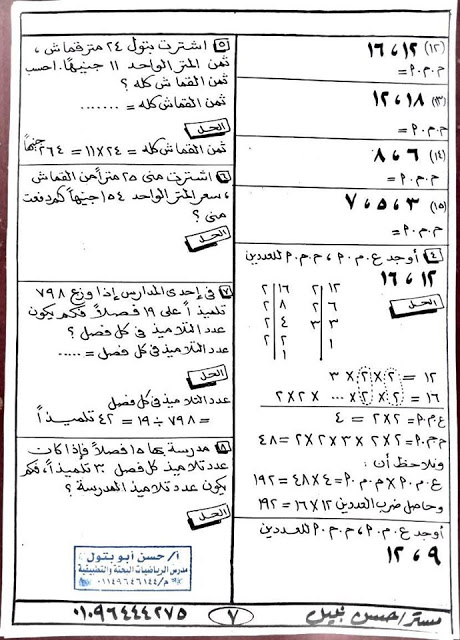 (١٢) ١٦ ، ١٢
م.م.٢ =
(١٣) ١٢ ، ١٨
م.م.٢ =
(١٤) ٨ ، ٦
م.م.٢ =
(١٥) ٧ ، ٥ ، ٣
م.م.٢ =
٤ أوجد ع.م.٢ ، م.م.٢ للعددين
١٦ ، ١٢
الحل
٢ ١٢ ٢ ١٦
٢ ٦ ٢ ٨
٣ ٣ ٢ ٤
١ ٢ ٢
١
١٢ = ٢ × ٢ × ٣
١٦ = ٢ × ٢ × ... × ٢×٢
ع.م.٢ = ٢×٢ = ٤
م.م.٢ = ٢ × ٢ × ٣ × ٢ × ٢ = ٤٨
ونلاحظ أن :
ع.م.٢ × م.م.٢ = ٤٨×٤ = ١٩٢
وحاصل ضرب العددين ١٢×١٦ = ١٩٢
أوجد ع.م.٢ ، م.م.٢ للعددين
١٢ ، ٩
٥ اشترت بتول ٢٤ متر قماش ،
ثمن المتر الواحد ١١ جنيهًا. احسب
ثمن القماش كله ؟
ثمن القماش كله = .......
الحل
ثمن القماش كله = ٢٤×١١ = ٢٦٤ جنيهًا
٦ اشترت منى ٢٥ مترًا من القماش
، سعر المتر الواحد ١٥٤ جنيهًا كم دفعت
منى ؟
الحل
٧ فى إحدى المدارس إذا وزع ٧٩٨
تلميذًا على ١٩ فصلاً فكم يكون
عدد التلاميذ فى كل فصل ؟
عدد التلاميذ فى كل فصل = .....
الحل
عدد التلاميذ فى كل فصل
= ٧٩٨ ÷ ١٩ = ٤٢ تلميذًا
٨ مدرسة بها ١٥ فصلاً فإذا كان
عدد تلاميذ كل فصل ٣٠ تلميذًا، فكم
يكون عدد تلاميذ المدرسة ؟
الحل
أ / حسن أبو بتول
مدرس الرياضيات البحتة والتطبيقية
م/٠١١٤٩٦٤٦١٤٤
مستر/ حسن نبيل
٧
٠١٠٩٦٤٤٤٢٧٥